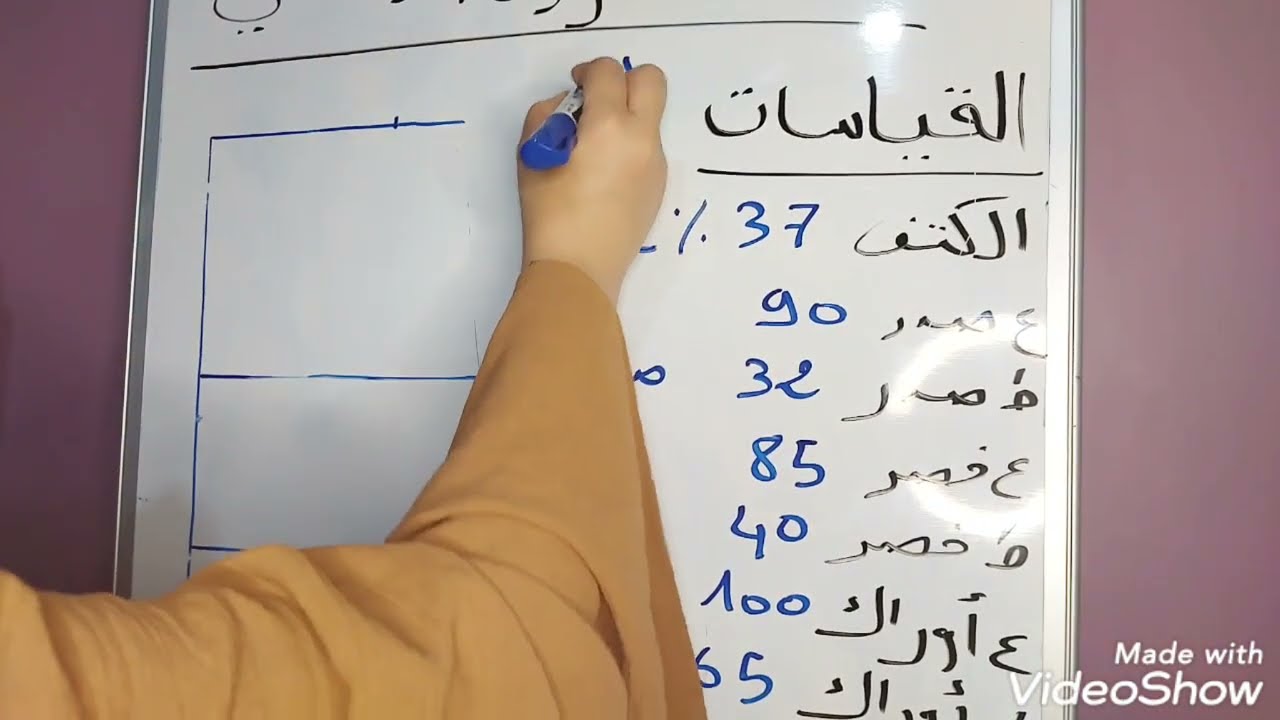 القياسات
الكتف 37 ٪
ع صدر 90
ط صدر 32
ع خصر 85
ط خصر 40
ع أوراك 100
أوراك 65
Made with
VideoShow